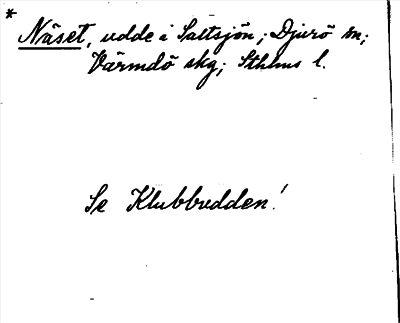 * Näset, udde i Saltsjön; Djurö sn;
Värmdö skg; Sthlms l.
Se Klubbudden!